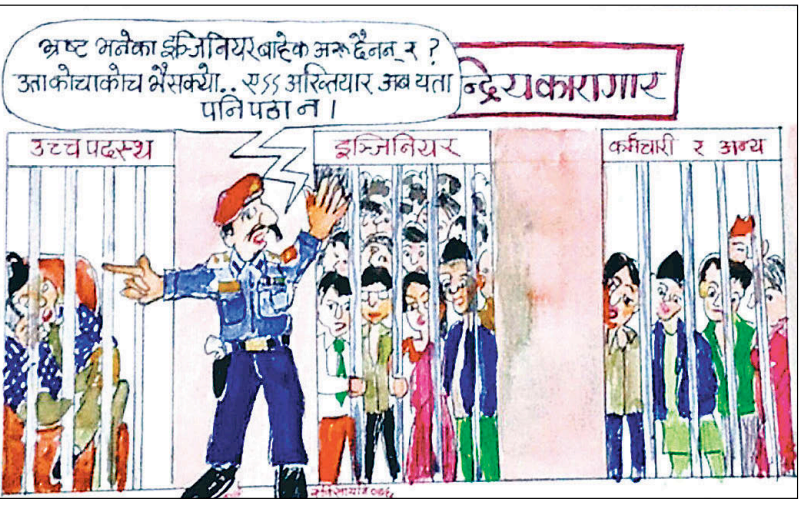 भ्रष्ट भनेका इञ्जिनियर बाहेक अरू छैनन् र ?
उता कोचाकोच भैसक्यो.. ए ऽऽ अख्तियार अब यता
पनि पठा न ।
न्द्रिय कारागार
उच्च पदस्थ
इञ्जिनियर
कर्मचारी र अन्य